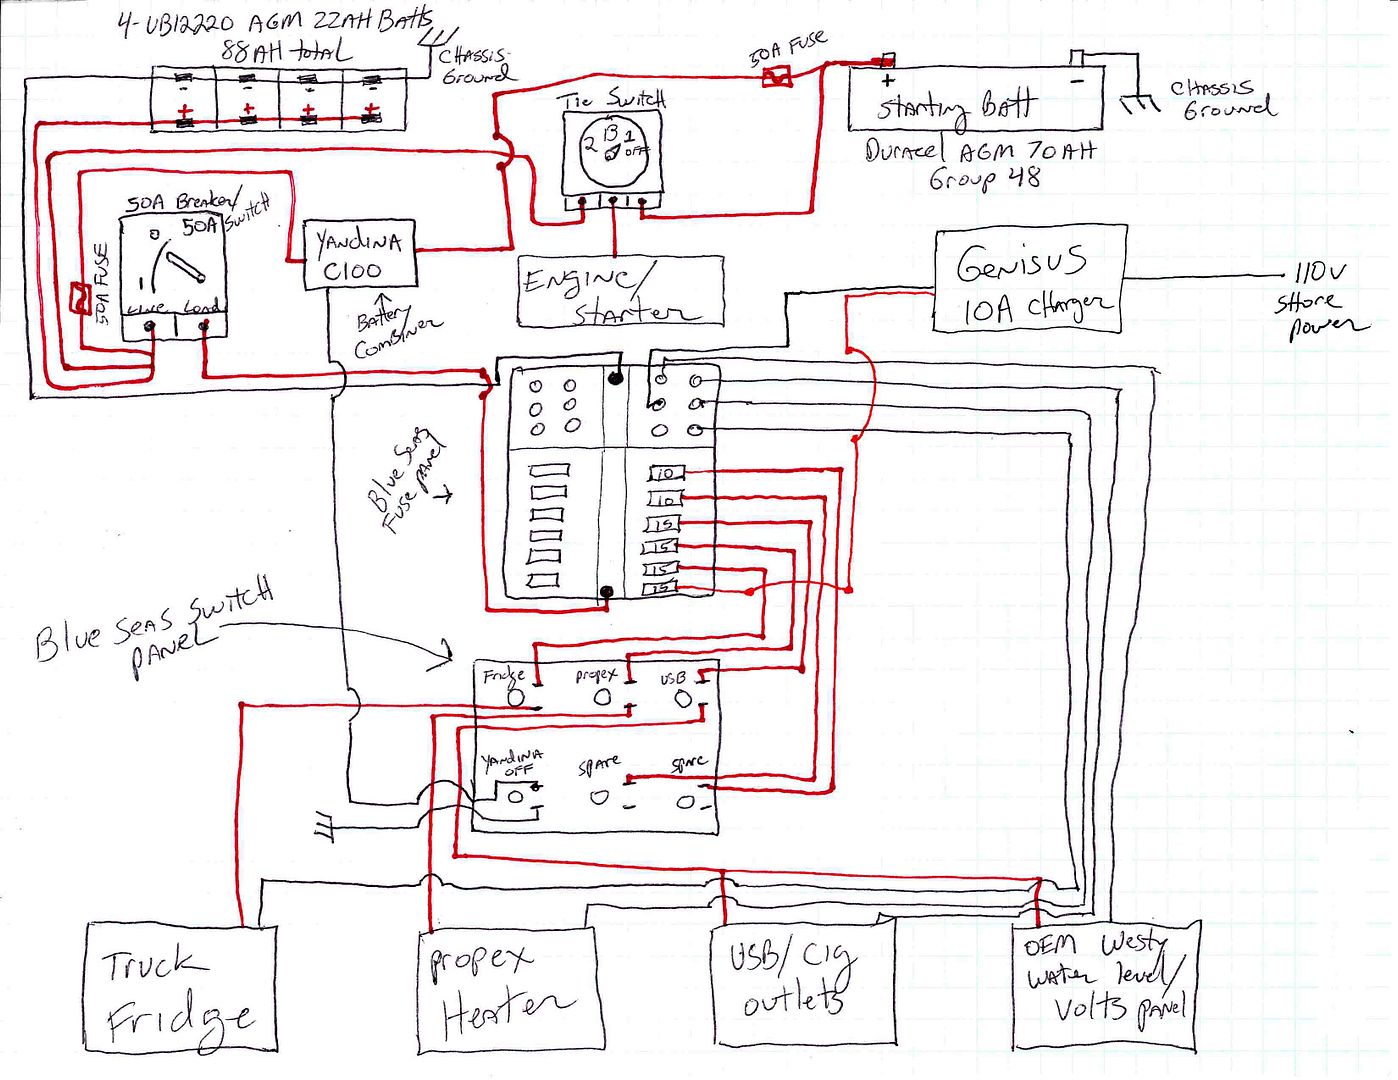 4-UB12220 AGM 22AH Batts
88AH total
CHASSIS
Ground
30A FUSE
Tie Switch
2 B 1
OFF
+
-
Starting Batt
CHASSIS
Ground
Duracel AGM 70AH
Group 48
50A Breaker/
50A Switch
50A FUSE
Line Load
YANDINA
C100
Battery
Combiner
ENGINE/
Starter
GENISUS
10A Charger
110V
Shore
power
Blue Seas
Fuse panel
10
10
15
15
15
15
Blue Seas Switch
PANEL
Fridge propex USB
YANDINA
OFF
SPARE
SPARE
Truck
Fridge
propex
Heater
USB/Cig
outlets
OEM Westy
water level/
Volts panel